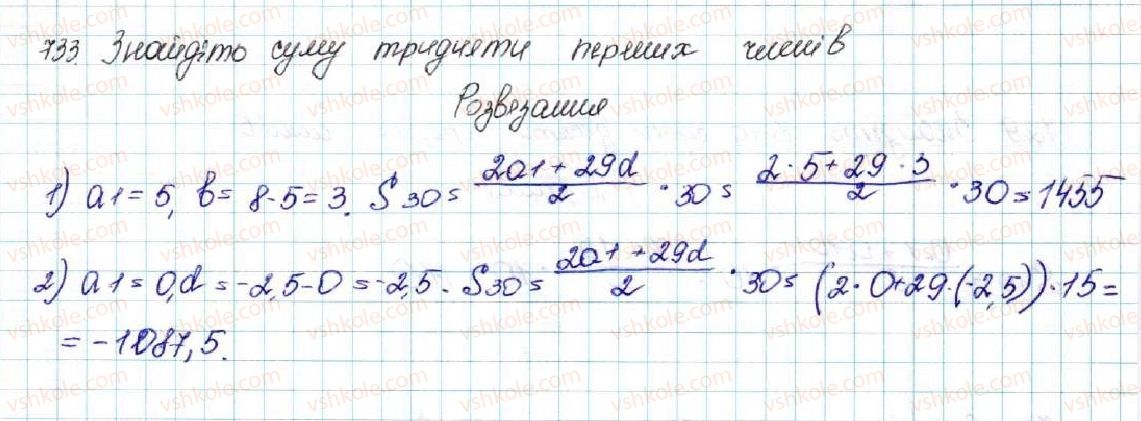 733. Знайдіто суму тридцяти перших членів
Розвязання
1) a1 = 5, b = 8-5 = 3. S30 = (2a1 + 29d)/2 · 30 = (2·5 + 29·3)/2 · 30 = 1455
2) a1 = 0, d = -2,5-0 = -2,5. S30 = (2a1 + 29d)/2 · 30 = (2·0+29·(-2,5))·15 =
= -1087,5.